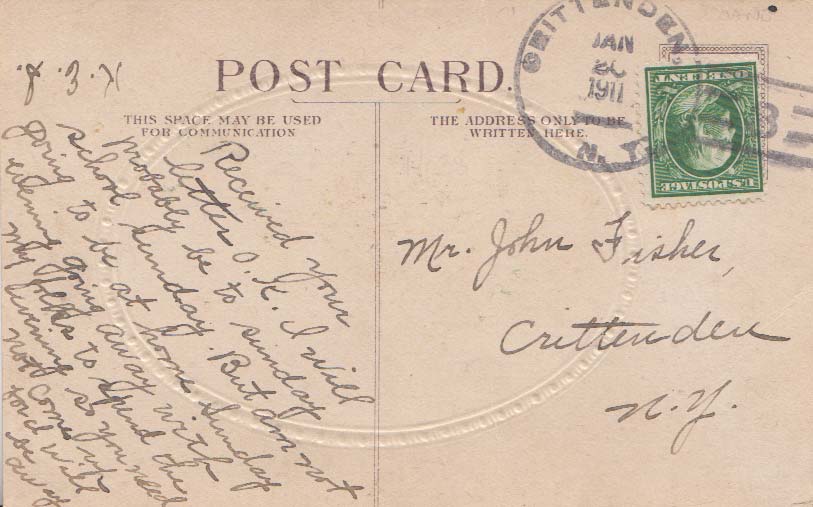 POST CARD.
THIS SPACE MAY BE USED
FOR COMMUNICATION
THE ADDRESS ONLY TO BE
WRITTEN HERE.
CRITTENDEN
JAN
1911
N.Y.
ONE CENT
U.S. POSTAGE
Received your
letter O.K. I will
probably be to sunday
school Sunday. But am not
going to be at home Sunday
evening going away with
my folks to spend the
evening so you need
not come up
for I will
be away
K. E. J.
Mr. John Fisher,
Crittenden
N.Y.